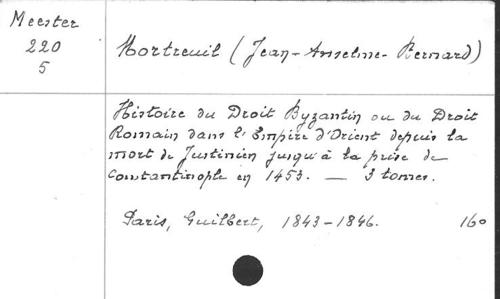 Meester
220
5
Mortreuil (Jean-Anselme-Bernard)
Histoire du Droit Byzantin ou du Droit
Romain dans l'Empire d'Orient depuis la
mort de Justinien jusqu'à la prise de
Constantinople en 1453. — 3 tomes.
Paris, Guilbert, 1843-1846. 16°